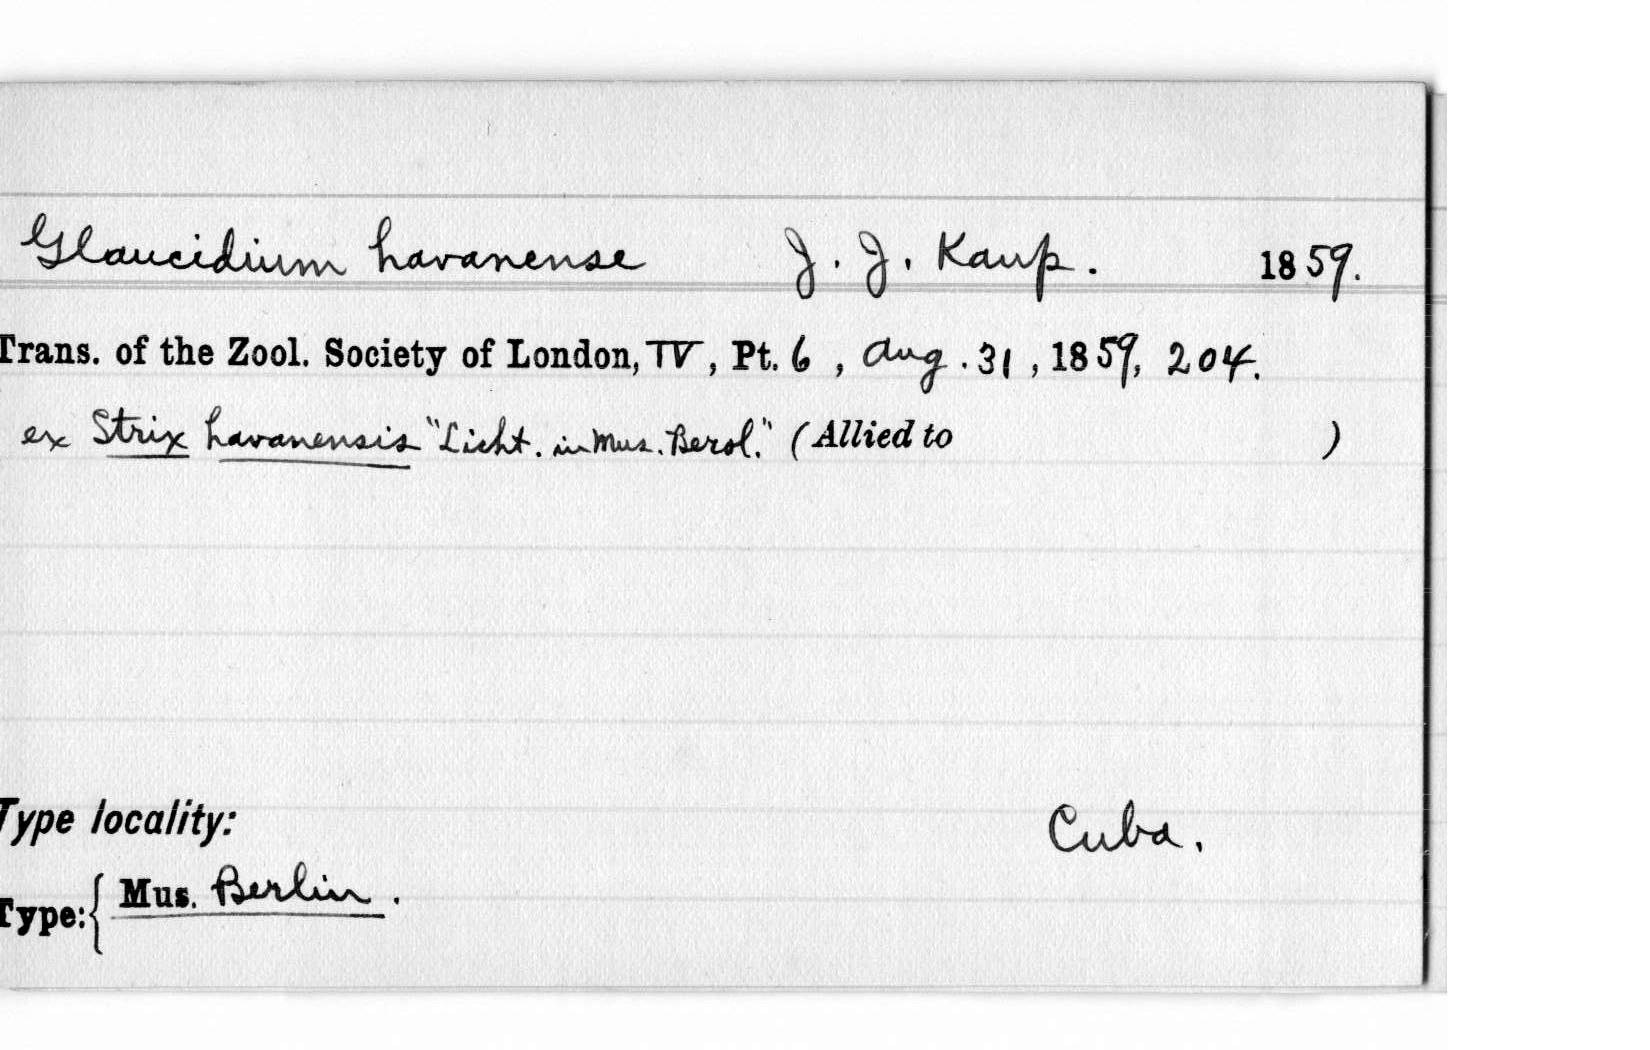 Glaucidium havanense J. J. Kaup. 1859.
Trans. of the Zool. Society of London, IV, Pt. 6, Aug. 31, 1859, 204.
ex Strix havanensis "Licht. in Mus. Berol." (Allied to )
Type locality: Cuba.
Type: { Mus. Berlin.